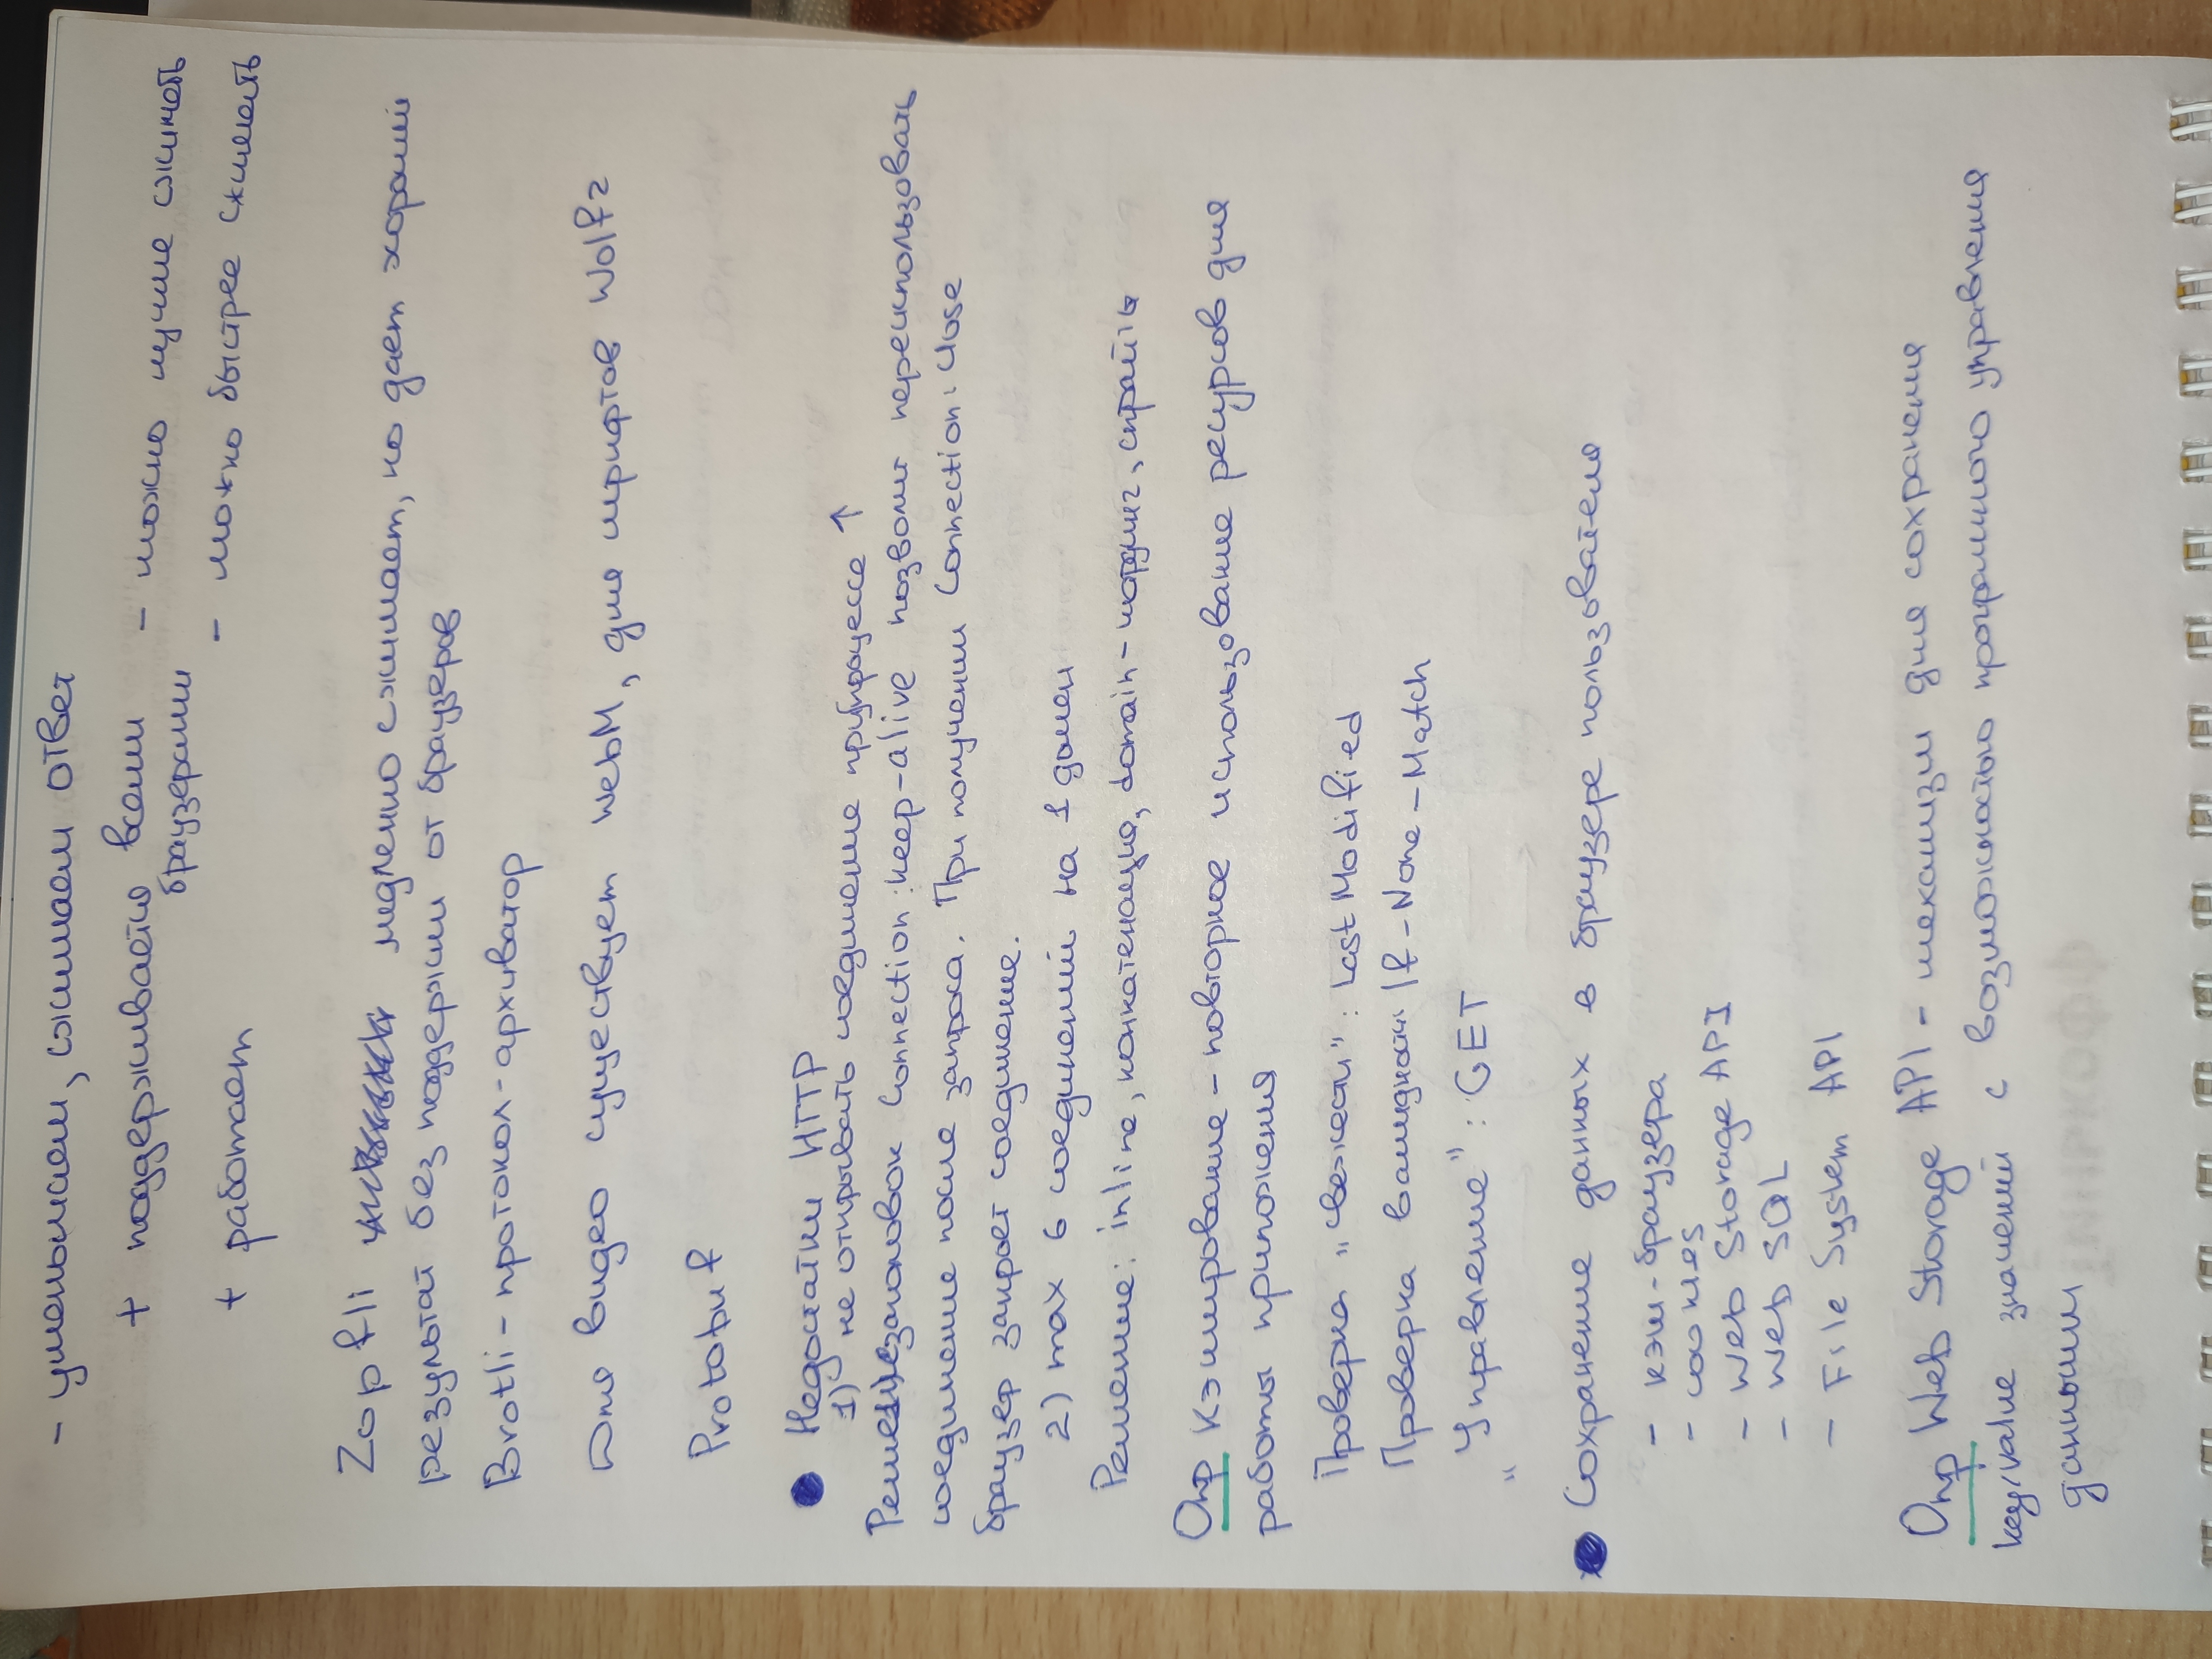 - уменьшаем, сжимаем ответ
+ поддерживается всеми браузерами
- можно лучше сжимать
+ работает
- можно быстрее сжимать
Zopfli медленно сжимает, но дает хороший
результат без поддержки от браузеров
Brotli - протокол-архиватор
Для видео существует WebM, для шрифтов Wolf2
Protobuf
Недостатки HTTP
1) не открывать соединение при процессе ↑
Решение заголовок Connection: keep-alive позволит переиспользовать
соединение после запроса. При получении Connection: Close
браузер закроет соединение.
2) max 6 соединений на 1 домен
Решение: inline, конкатенация, domain-шардинг, спрайты
Опр Кэширование - повторное использование ресурсов для
работы приложения
Проверка „свежести": Last Modified
Проверка валидности If-None-Match
„Управление": GET
Сохранение данных в браузере пользователя
- кэш-браузера
- cookies
- Web Storage API
- Web SQL
- File System API
Опр Web Storage API - механизм для сохранения
key/value значений с возможностью програмного управления
данными